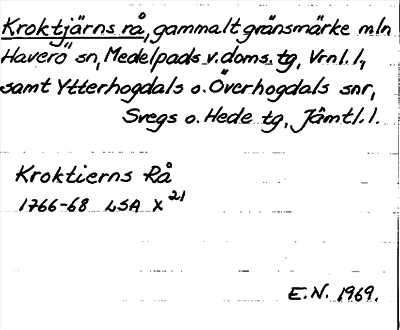 Kroktjärns rå, gammalt gränsmärke mln
Haverö sn, Medelpads v. doms. tg, Vrnl. l,
samt Ytterhogdals o. Överhogdals snr,
Svegs o. Hede tg, Jämtl. l.
Kroktierns Rå
1766-68 LSA X 21
E.N. 1969.